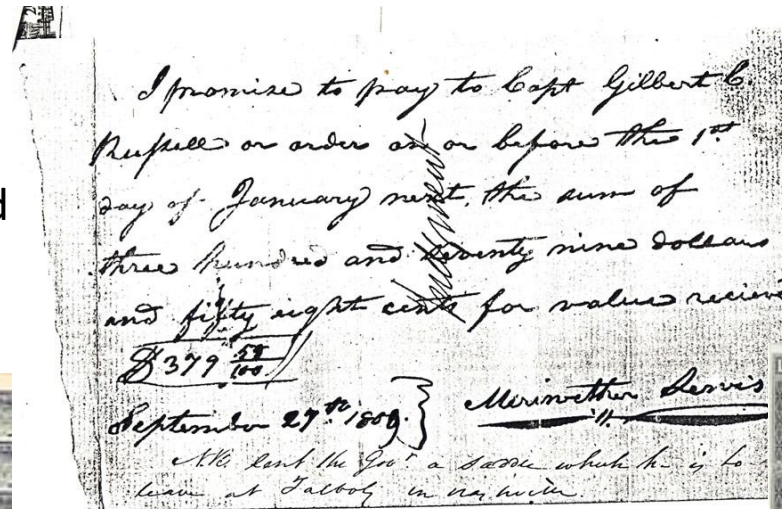 d
I promise to pay to Capt Gilbert C.
Russell or order on or before the 1st
day of January next, the sum of
three hundred and seventy nine dollars
and fifty eight cents for value reciev
$379 58/100
September 27th 1809.
Meriwether Lewis
NB. lent the Govr. a saddle which he is to
leave at Talbots in